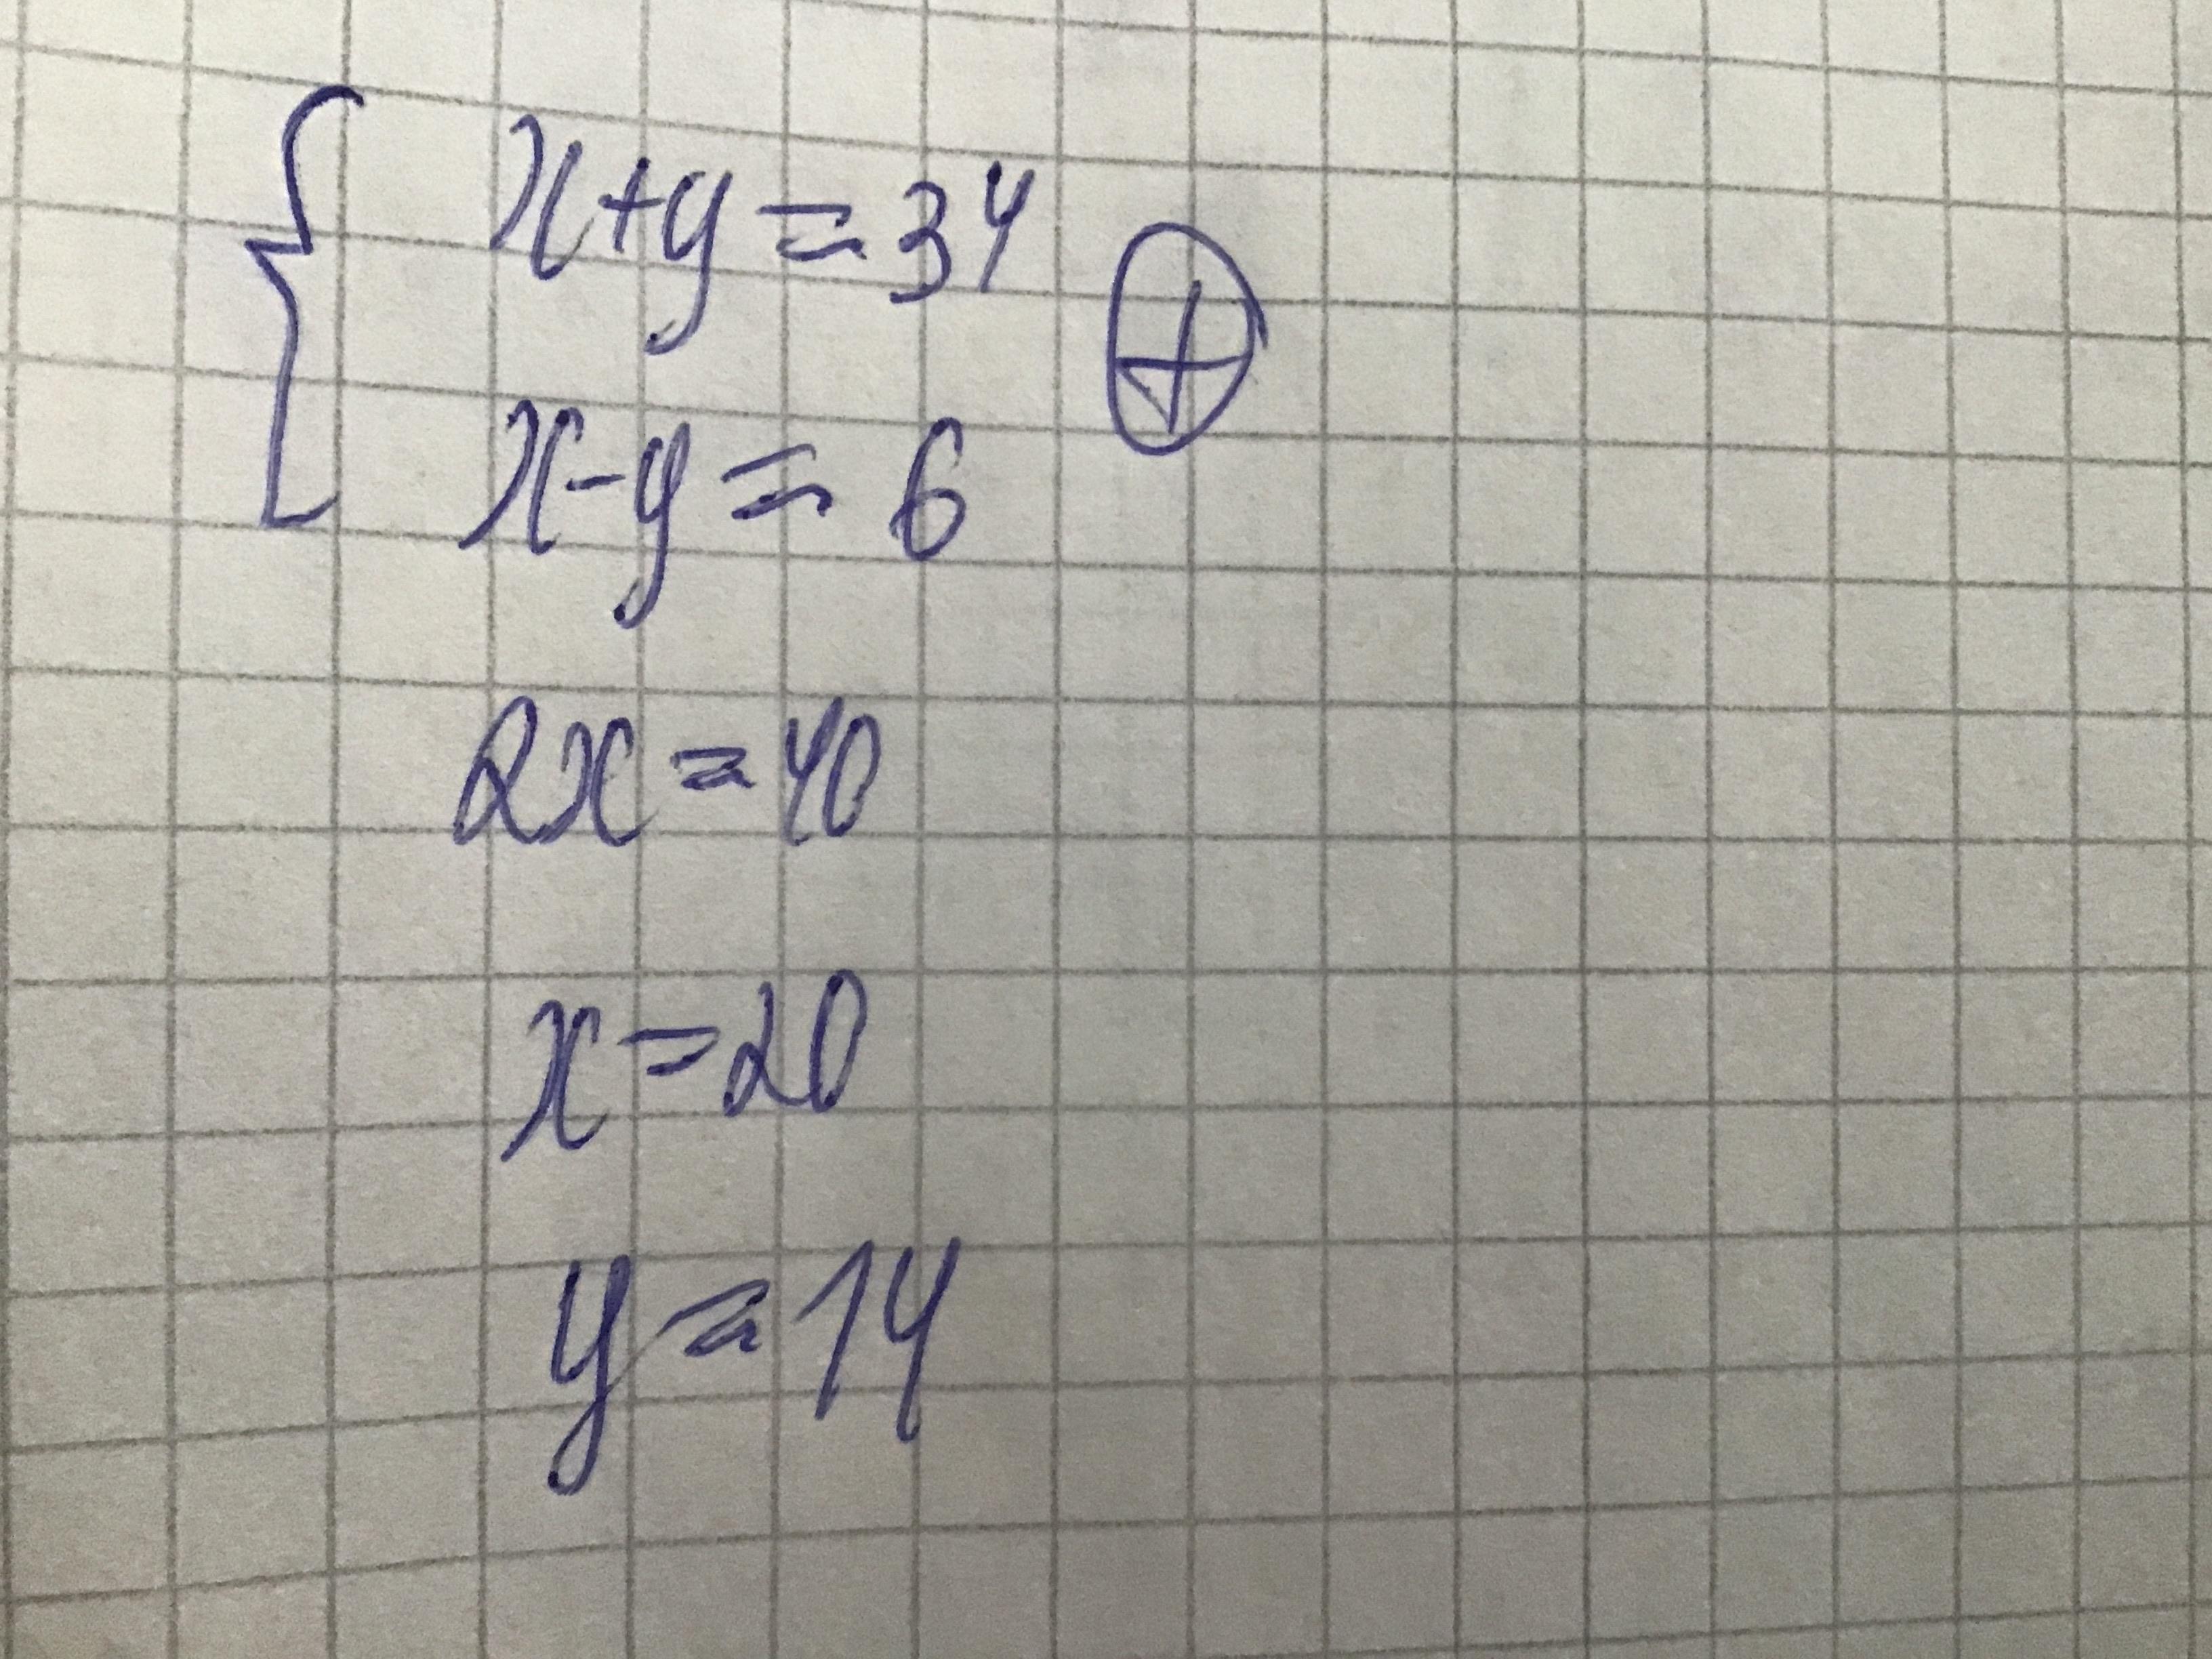 x+y=34 ⊕
x-y=6
2x=40
x=20
y=14